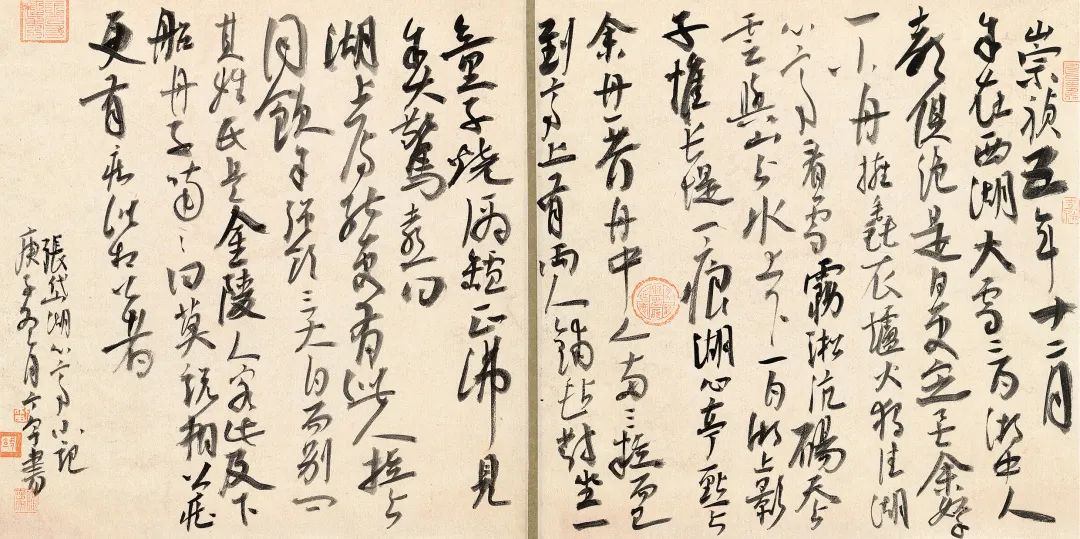 崇禎五年十二月
余住西湖大雪三日湖中人
聲俱絕是日更定矣余拏
一小舟擁毳衣爐火獨往湖
心亭看雪霧淞沆碭天與
雲與山與水上下一白湖上影
子惟長堤一痕湖心亭一點與
余舟一芥舟中人兩三粒而已
到亭上有兩人鋪氈對坐一
童子燒酒爐正沸見
余大驚喜曰
湖上焉得更有此人拉余
同飲余強飲三大白而別問
其姓氏是金陵人客此及下
船舟子喃喃曰莫說相公癡
更有癡似相公者
張岱湖心亭小記
庚子冬月書